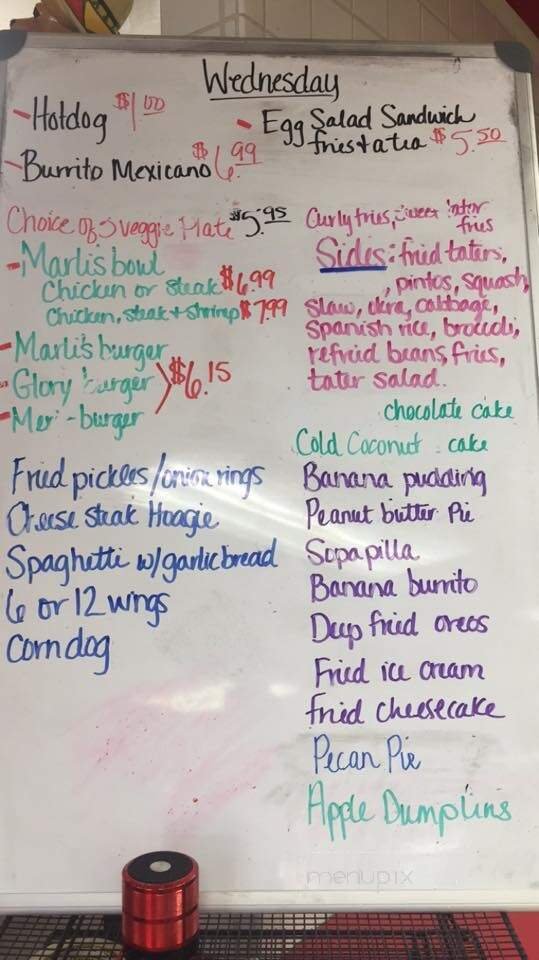 Wednesday
- Hotdog $1.00
- Egg Salad Sandwich
fries + a tea $5.50
- Burrito Mexicano $6.99
Choice of 3 veggie Plate $5.95
- Marlis bowl
Chicken or steak $6.99
Chicken, steak + shrimp $7.99
- Marlis burger
- Glory burger $6.15
- Mer - burger
Fried pickles/onion rings
Cheese steak Hoagie
Spaghetti w/garlic bread
6 or 12 wings
Corndog
Curly fries, sweet tator
fries
Sides: fried taters,
, pintos, squash,
slaw, okra, cabbage,
Spanish rice, brocoli,
refried beans, fries,
tater salad.
chocolate cake
Cold Coconut cake
Banana pudding
Peanut butter Pie
Sopapilla
Banana burrito
Deep fried oreos
Fried ice cream
fried cheesecake
Pecan Pie
Apple Dumplins
menupix